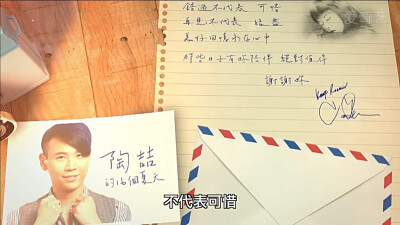 錯過不代表 可惜
再見不代表 結束
美好回憶永在心中
那些日子有妳陪伴 絕對值得
謝謝妳
陶喆
的16個夏天
不代表可惜